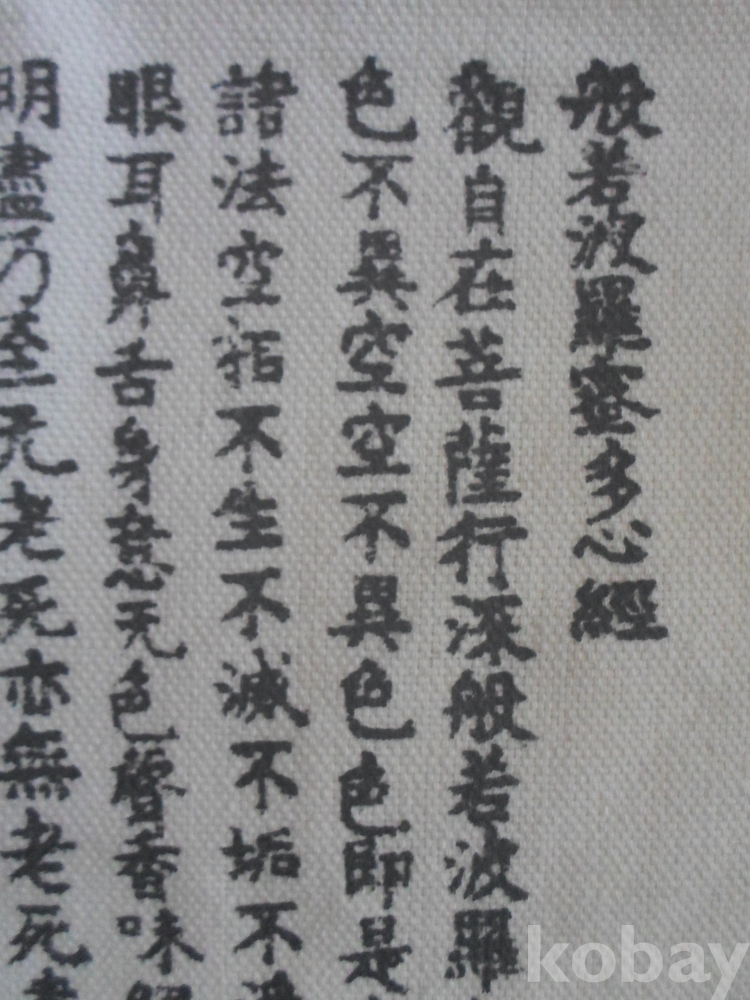 般若波羅蜜多心經
觀自在菩薩行深般若波羅
色不異空空不異色色即是
諸法空相不生不滅不垢不淨
眼耳鼻舌身意无色聲香味觸
明盡乃至无老死亦無老死盡
kobay